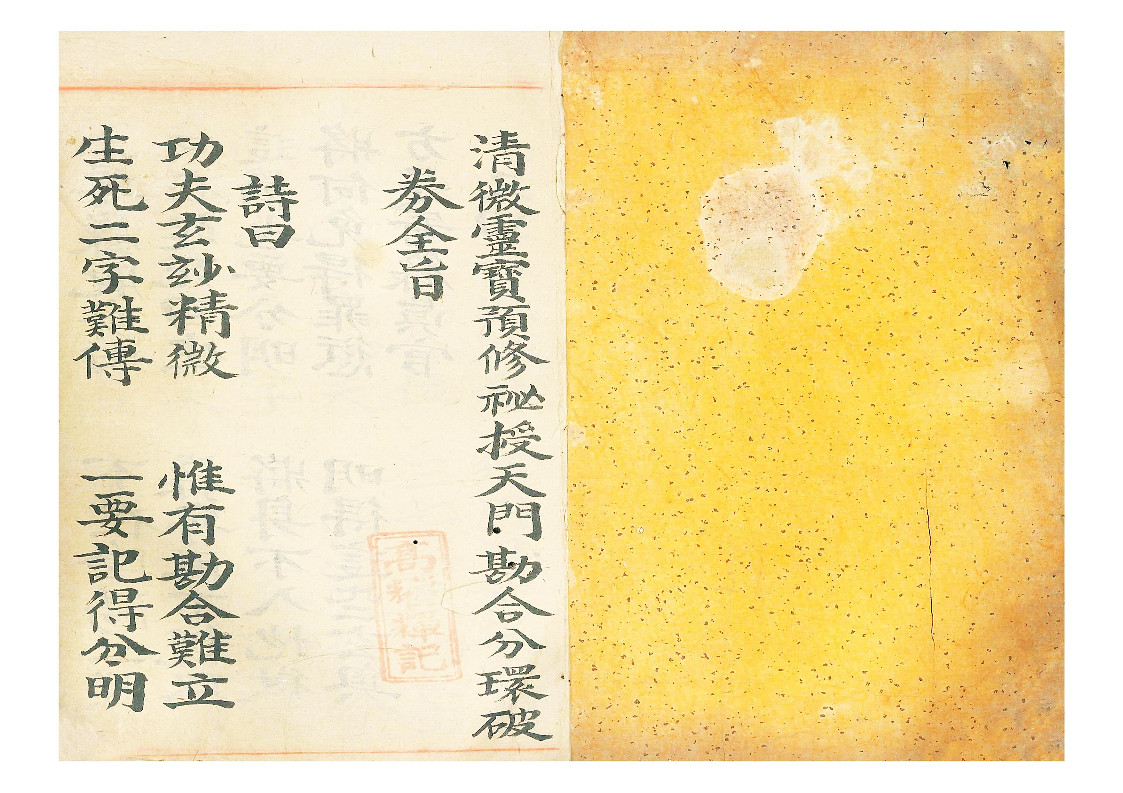 清微靈寶預修祕授天門勘合分環破
券全旨
詩曰
功夫玄玅精微　惟有勘合難立
生死二字難傳　一要記得分明